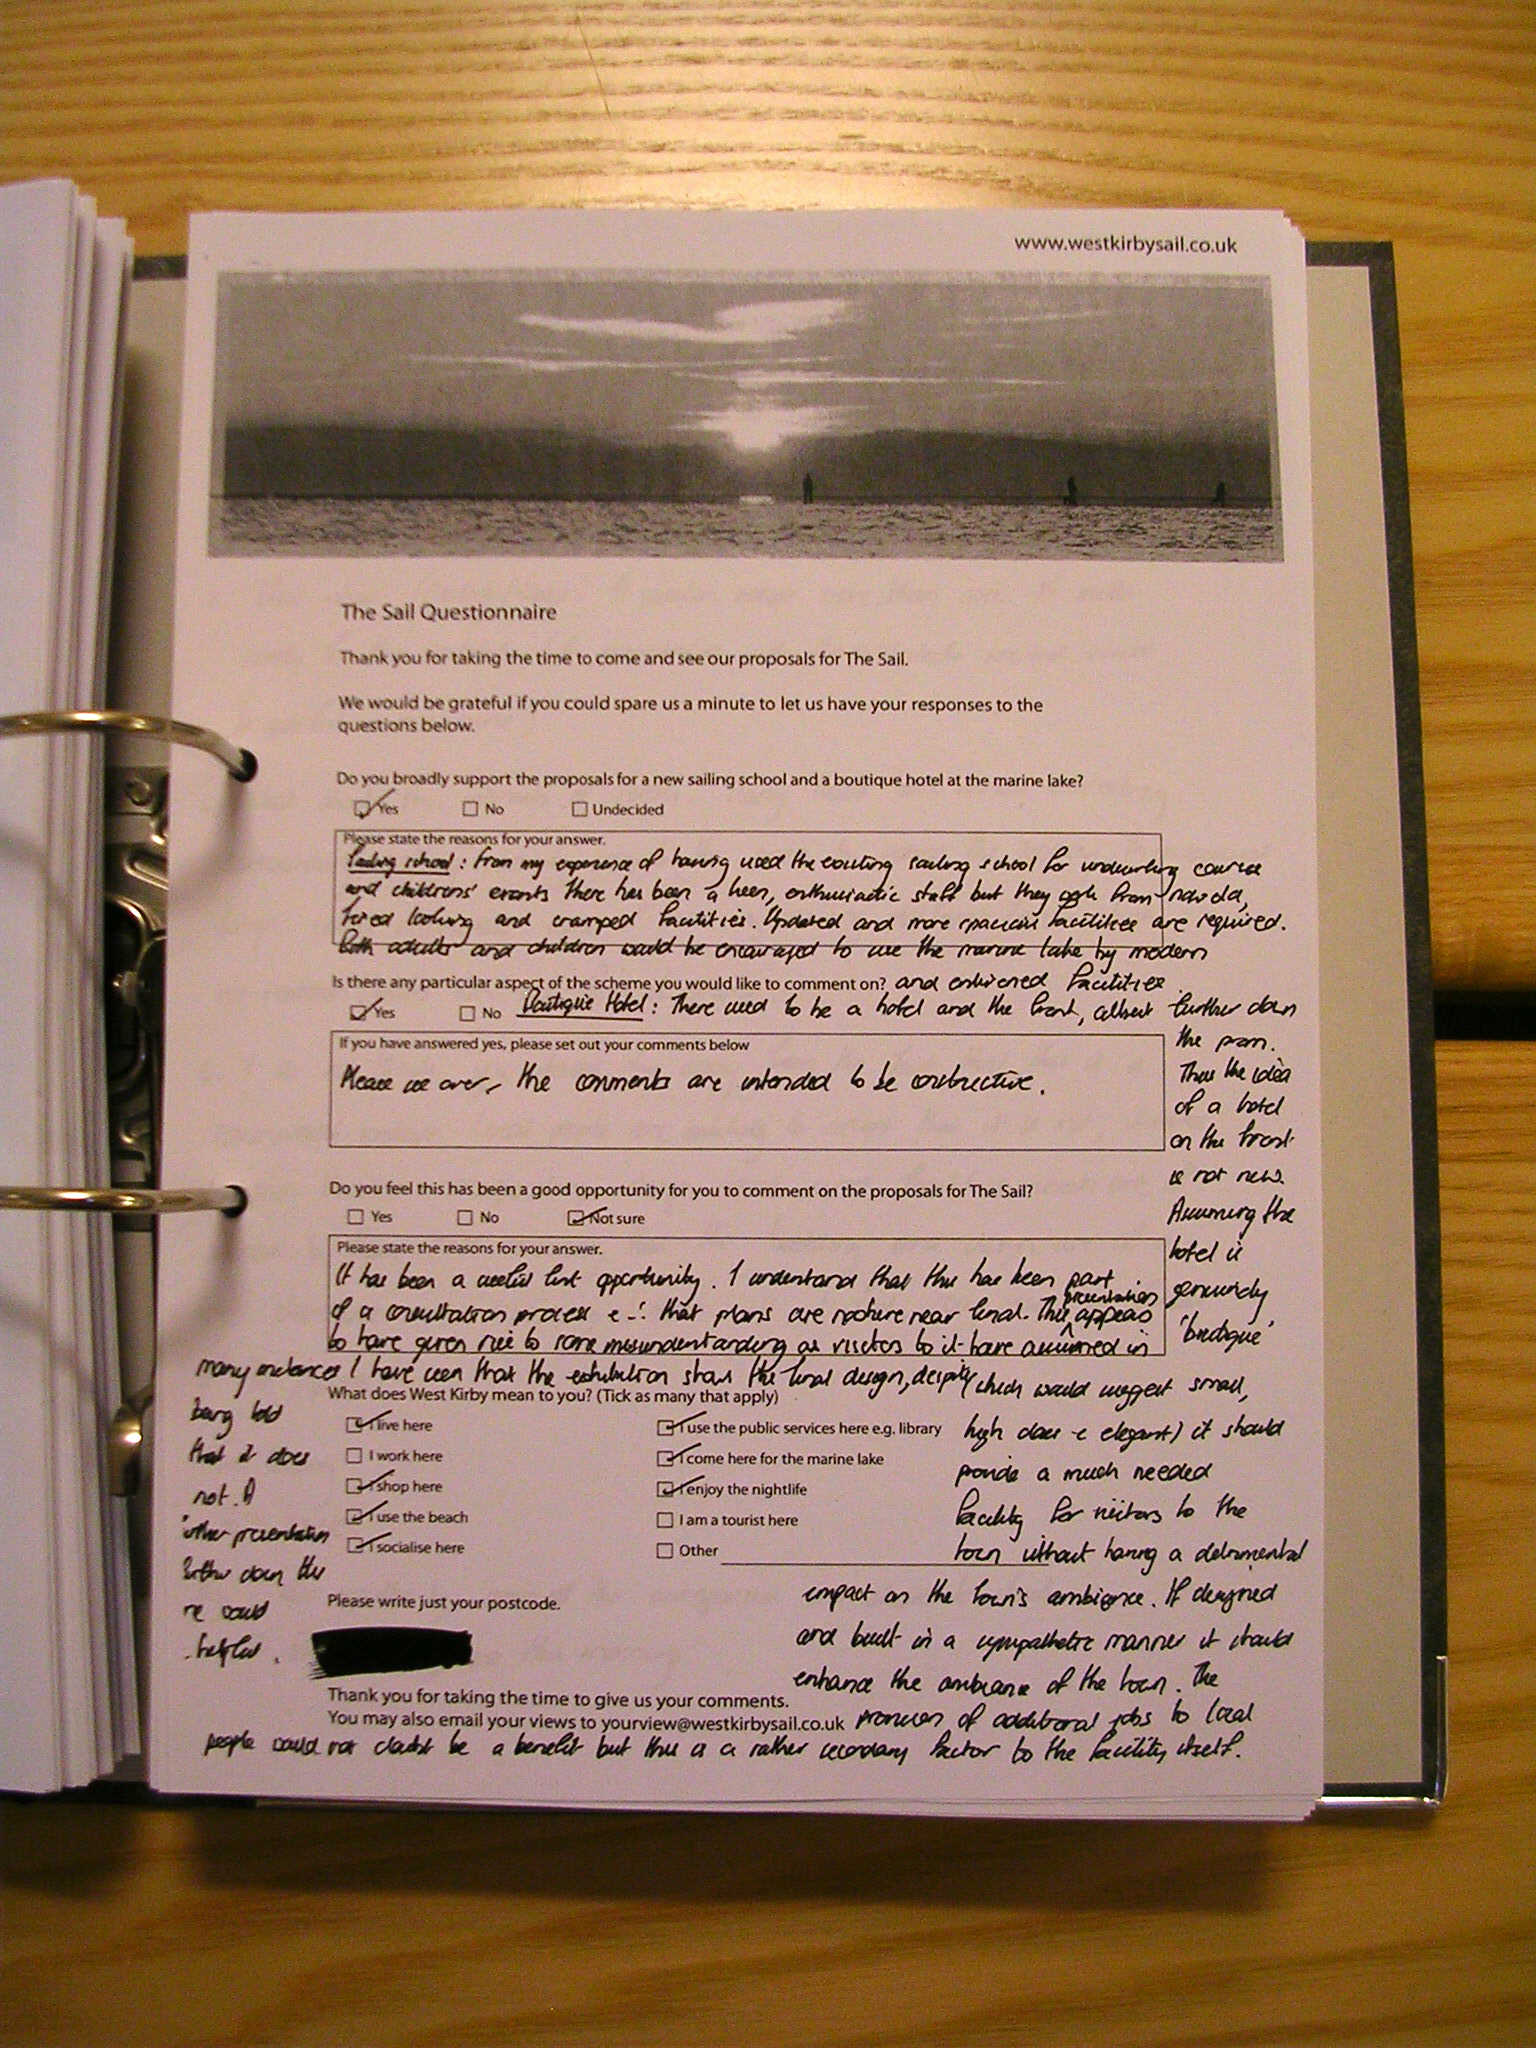 www.westkirbysail.co.uk
The Sail Questionnaire
Thank you for taking the time to come and see our proposals for The Sail.
We would be grateful if you could spare us a minute to let us have your responses to the
questions below.
Do you broadly support the proposals for a new sailing school and a boutique hotel at the marine lake?
Yes No Undecided
Please state the reasons for your answer.
Sailing school: From my experience of having used the existing sailing school for windsurfing course
and childrens' events there has been a keen, enthusiastic staff but they work from now old,
tired looking and cramped facilities. Updated and more spacious facilities are required.
Both adults and children would be encouraged to use the marine lake by modern
Is there any particular aspect of the scheme you would like to comment on? and enlivened facilities.
Yes No Boutique Hotel: There used to be a hotel and the front, albeit further down
the prom.
If you have answered yes, please set out your comments below
Please see over, the comments are intended to be constructive.
Thus the idea
of a hotel
on the front
is not new.
Assuming the
hotel is
genuinely
'boutique'
Do you feel this has been a good opportunity for you to comment on the proposals for The Sail?
Yes No Not sure
Please state the reasons for your answer.
It has been a useful first opportunity. I understand that this has been part
of a consultation process that plans are nowhere near final. This presentation appears
to have given rise to some misunderstanding as visitors to it have assumed in
many instances I have seen that the exhibition shows the final design, despite
being told
that it does
not. A
further presentation
further down the
would
helpful.
which would suggest small,
high class elegant) it should
provide a much needed
facility for visitors to the
town without having a detrimental
impact on the town's ambience. If designed
and built in a sympathetic manner it should
enhance the ambiance of the town. The
provision of additional jobs to local
people would no doubt be a benefit but this is a rather secondary factor to the facility itself.
What does West Kirby mean to you? (Tick as many that apply)
I live here I use the public services here e.g. library
I work here I come here for the marine lake
I shop here I enjoy the nightlife
I use the beach I am a tourist here
I socialise here Other
Please write just your postcode.
Thank you for taking the time to give us your comments.
You may also email your views to yourview@westkirbysail.co.uk